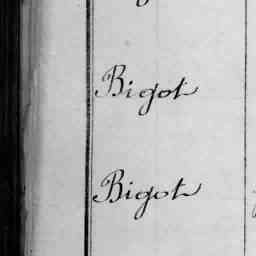 Bigot
Bigot